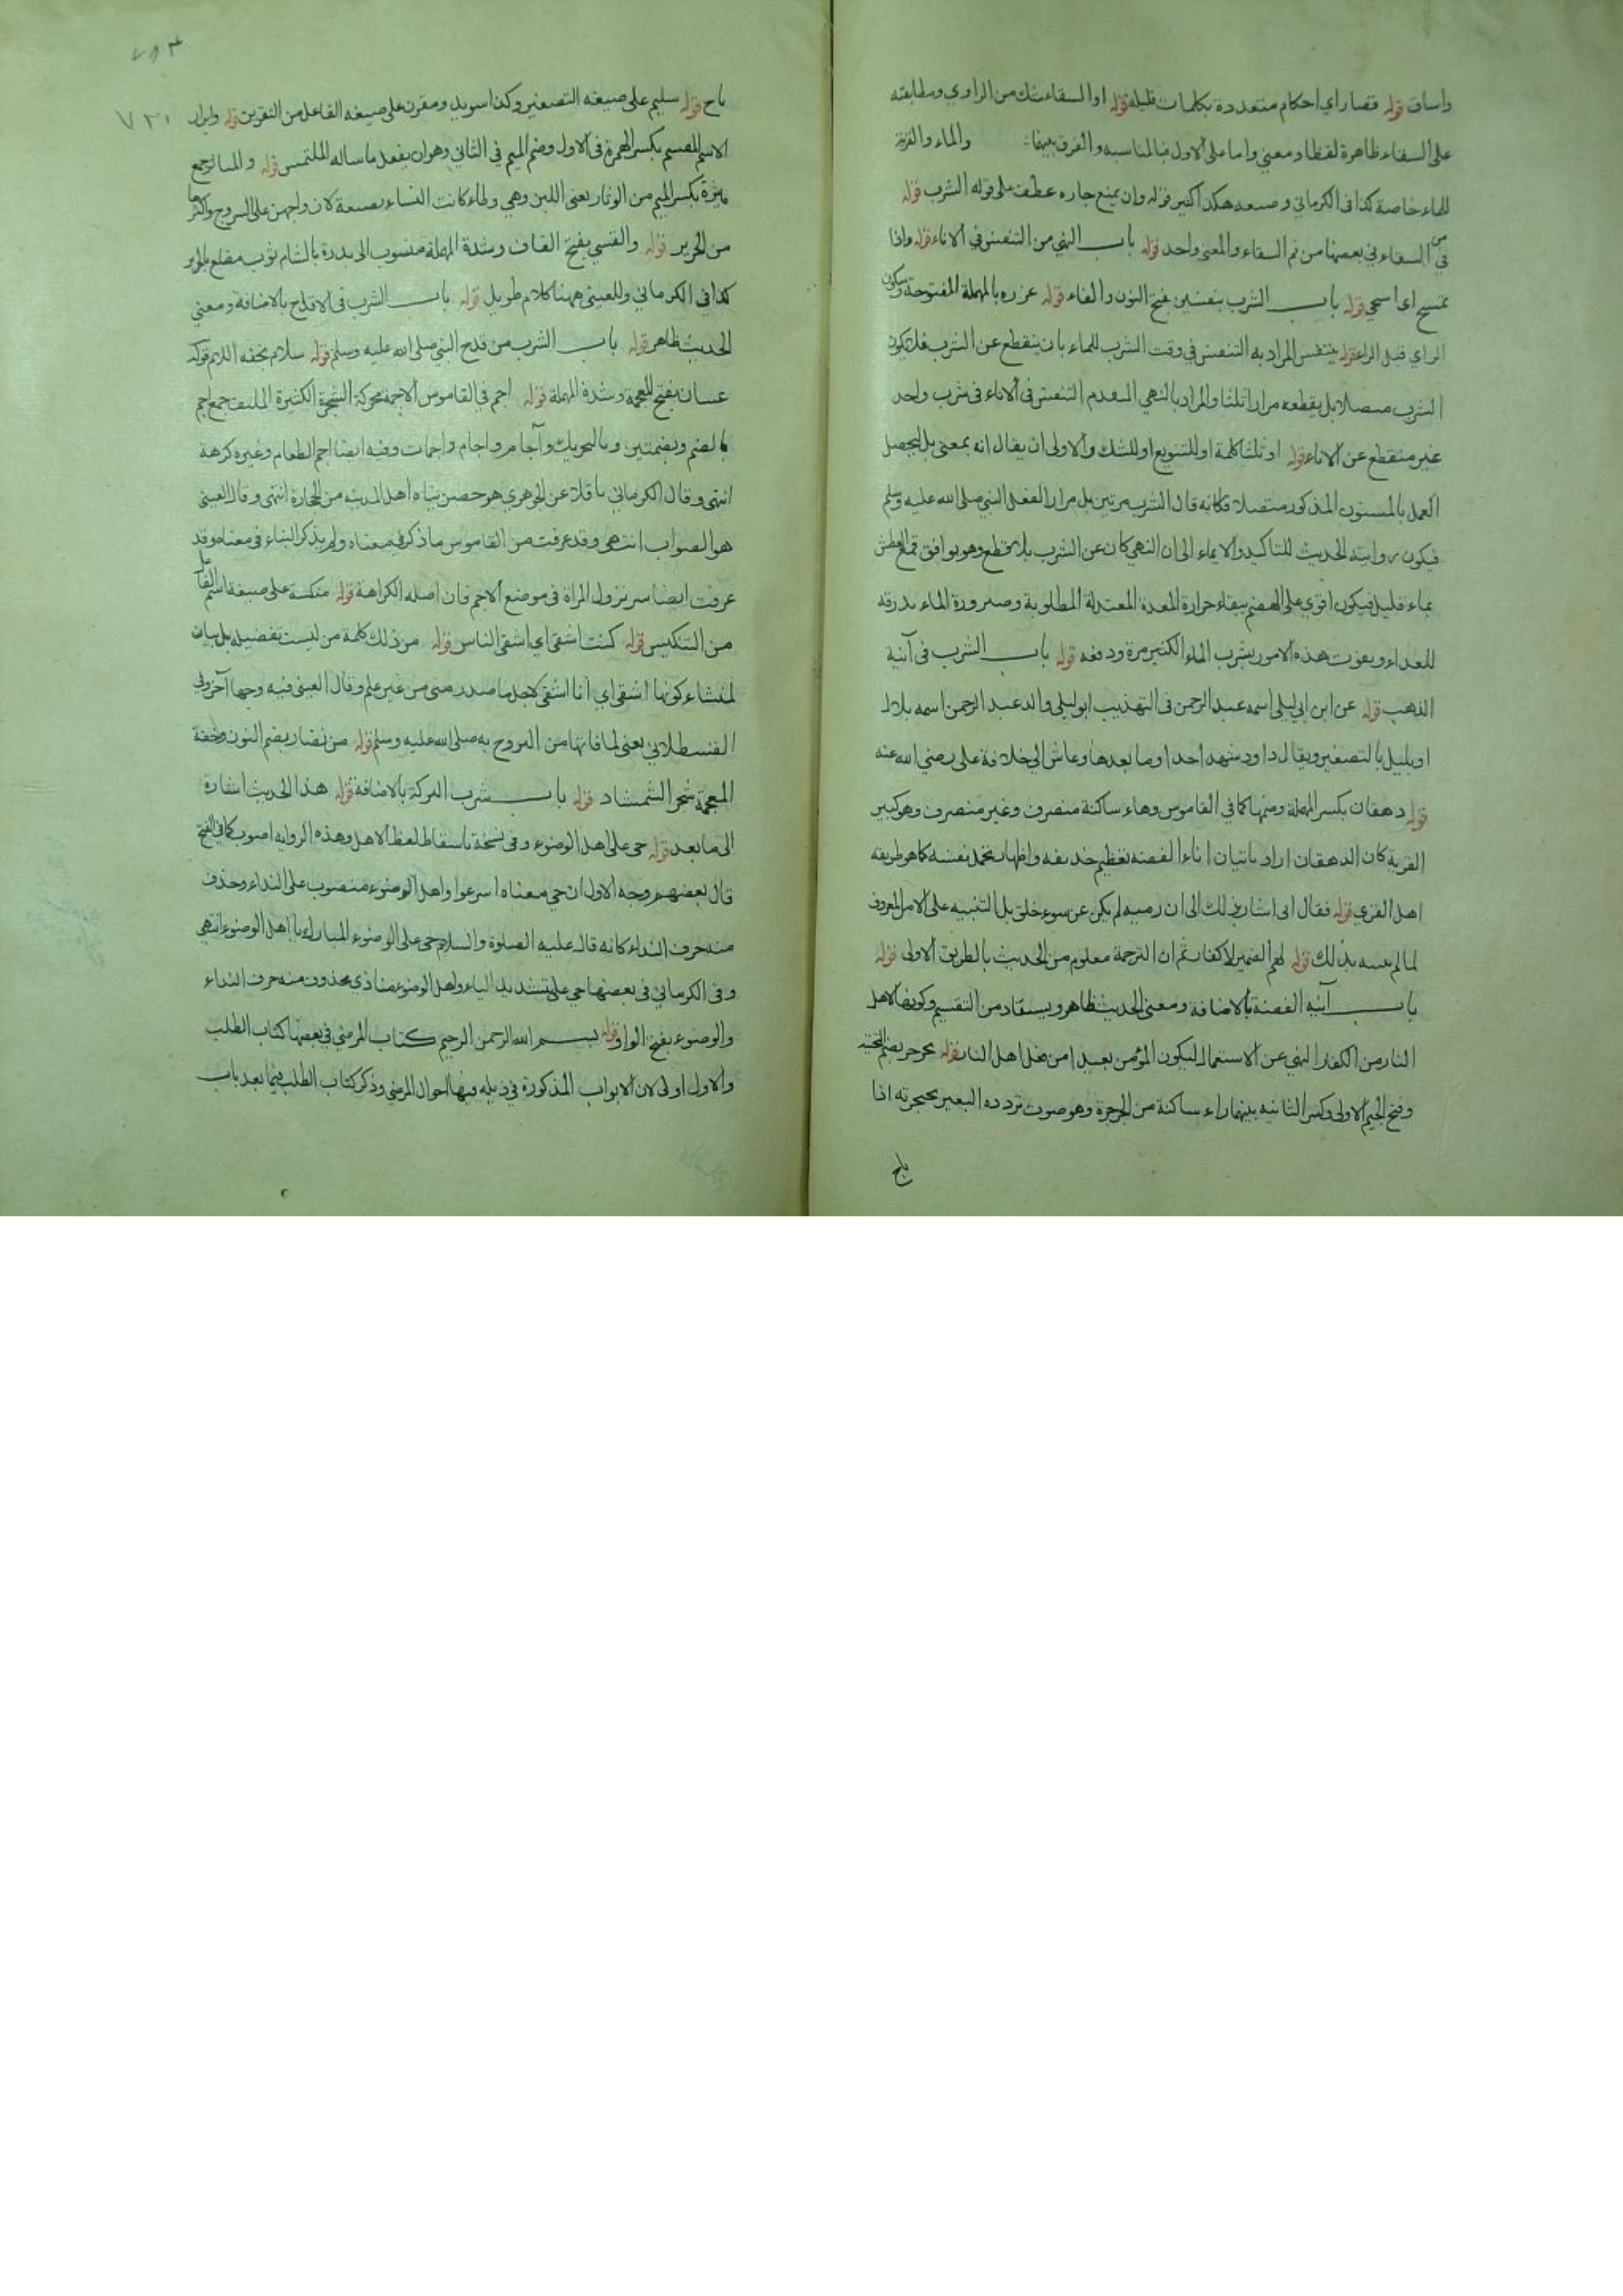 واساف قوله قصار اي احكام متعددة بكلمات قليلة قوله او السقاء شك من الراوي ومطابقته
على السقاء ظاهرة لفظا ومعنى واما على الاول فبالمناسبه والفرق بينهما والماء والقربة
للماء خاصة كذا في الكرماني هكذا قوله وان يمنع جاره عطف على قوله الشرب قوله
من في السقاء في بعضها من فم السقاء والمعنى واحد قوله باب النهي من التنفس في الاناء قوله واذا
تمسح اي قوله باب الشرب بنفسين بفتح النون والفاء قوله عزره بالمهملة المفتوحة وسكون
الزاي قبل الراء قوله يتنفس المراد به التنفس في وقت الشرب للماء بان ينقطع عن الشرب فلا يكون
الشرب متصلا بل يقطعه مرارا ثلثا والمراد بالنهي المتقدم التنفس في الاناء في شرب واحد
غير منقطع عن الاناء قوله او ثلثا كلمة او للتنويع او للشك والاولى ان يقال انه بمعنى بل ليحصل
العمل بالمسنون المذكور متصلا فكانه قال الشرب مرتين بل مرارا لفعل النبي صلى الله عليه وسلم
فيكون رواية الحديث للتاكيد والايماء الى ان النهي كان عن الشرب بلا قطع وهو يوافق قمع العطش
بماء قليل فيكون اقوى على الهضم ببقاء حرارة المعدة المعتدلة المطلوبة وصيرورة الماء بدرقة
للغداء ويفوت هذه الامور بشرب الماء الكثير مرة ودفعه قوله باب الشرب في آنية
الذهب قوله عن ابن ابي ليلى اسمه عبد الرحمن في التهذيب ابو ليلى والد عبد الرحمن اسمه بلال
او بليل بالتصغير ويقال داود شهد احدا وما بعدها وعاش الى خلافة على رضي الله عنه
قوله دهقان بكسر المهملة وضمها كما في القاموس وهاء ساكنة منصرف وغير منصرف وهو كبير
القرية كان الدهقان اراد باتيان اناء الفضه تعظيم حذيفه واظهار تجمل نفسه كما هو طريقه
اهل القرى قوله فقال اني اشار بذلك الى ان رميه لم يكن عن سوء خلق بل التنبيه على الامر المعروف
لما لم ينته بذلك قوله لهم الضمير للكفار ثم ان الترجمة معلوم من الحديث بالطريق الاولى قوله
باب آنية الفضة بالاضافة ومعنى الحديث ظاهر ويستفاد من التقسيم وكونها لاهل
النار من الكفار النهي عن الاستعمال ليكون المؤمن بعيدا من فعل اهل النار قوله يجرجر بضم التحتية
وفتح الجيم الاولى وكسر الثانيه بينهما راء ساكنة من الجرجرة وهو صوت تردده البعير بحنجرته اذا
هاج
٧٣١
هاج قوله سليم على صيغه التصغير وكذا سويد ومقرن على صيغه الفاعل من التقرين قوله وابرار
الاسم المقسم بكسر الهمزة في الاول وضم الميم في الثاني وهو ان يفعل ما ساله الملتمس قوله والمياثر جمع
ميثرة بكسر الميم من الوثار يعنى اللين وهي وطاء كانت النساء يصنعه لازواجهن على السروج واكثرها
من الحرير قوله والقسي بفتح القاف وشدة المهملة منسوب الى بلدة بالشام ثوب مضلع بالحرير
كذا في الكرماني وللعيني ههنا كلام طويل قوله باب الشرب في الاقداح بالاضافة ومعنى
الحديث ظاهر قوله باب الشرب من قدح النبي صلى الله عليه وسلم قوله سلام بخفة اللام قوله
غسان بفتح المعجمة وشدة المهملة قوله اجم في القاموس الاجمة محركة الشجرة الكثيرة الملتف جمع اجم
بالضم وبضمتين وبالتحريك وآجام واجام واجمات وفيه ايضا اجم الطعام وغيره كرهه
انتهى وقال الكرماني ناقلا عن الجوهري هو حصن بناه اهل المدينه من الحجارة انتهى وقال العيني
هو الصواب انتهى وقد عرفت من القاموس ما ذكر في معناه ولم يذكر البناء في معناه وقد
عرفت ايضا سر نزول المراة في موضع الاجم فان اصله الكراهة قوله منكسة على صيغة اسم الفاعل
من التنكيس قوله كنت اشقى اي اشقى الناس قوله من ذلك كلمة من ليست تفضيليه بل بيان
لمنشاء كونها اشقى اي انا اشقى لاجل ما صدر منى من غير علم وقال العيني فيه وجها آخر وفي
القسطلاني يعنى لما فاتها من التزوج به صلى الله عليه وسلم قوله من نضار بضم النون وخفة
المعجمة شجر الشمشاد قوله باب شرب البركة بالاضافة قوله هذا الحديث اشارة
الى ما بعد قوله حي على اهل الوضوء وفي نسخة باسقاط لفظ الاهل وهذه الروايه اصوب كما في الفتح
قال بعضهم وجه الاول ان حي معناه اسرعوا واهل الوضوء منصوب على النداء وحذف
منه حرف النداء كانه قال عليه الصلوة والسلام حي على الوضوء المبارك يا اهل الوضوء انتهى
وفي الكرماني في بعضها حي علي بتشديد الياء واهل الوضوء منادي محذوف منه حرف النداء
والوضوء بفتح الواو قوله بسم الله الرحمن الرحيم كتاب المرضى في بعضها كتاب الطب
والاول اولى لان الابواب المذكورة في ذيله فيها احوال المرضى وذكر كتاب الطب فيما بعد باب